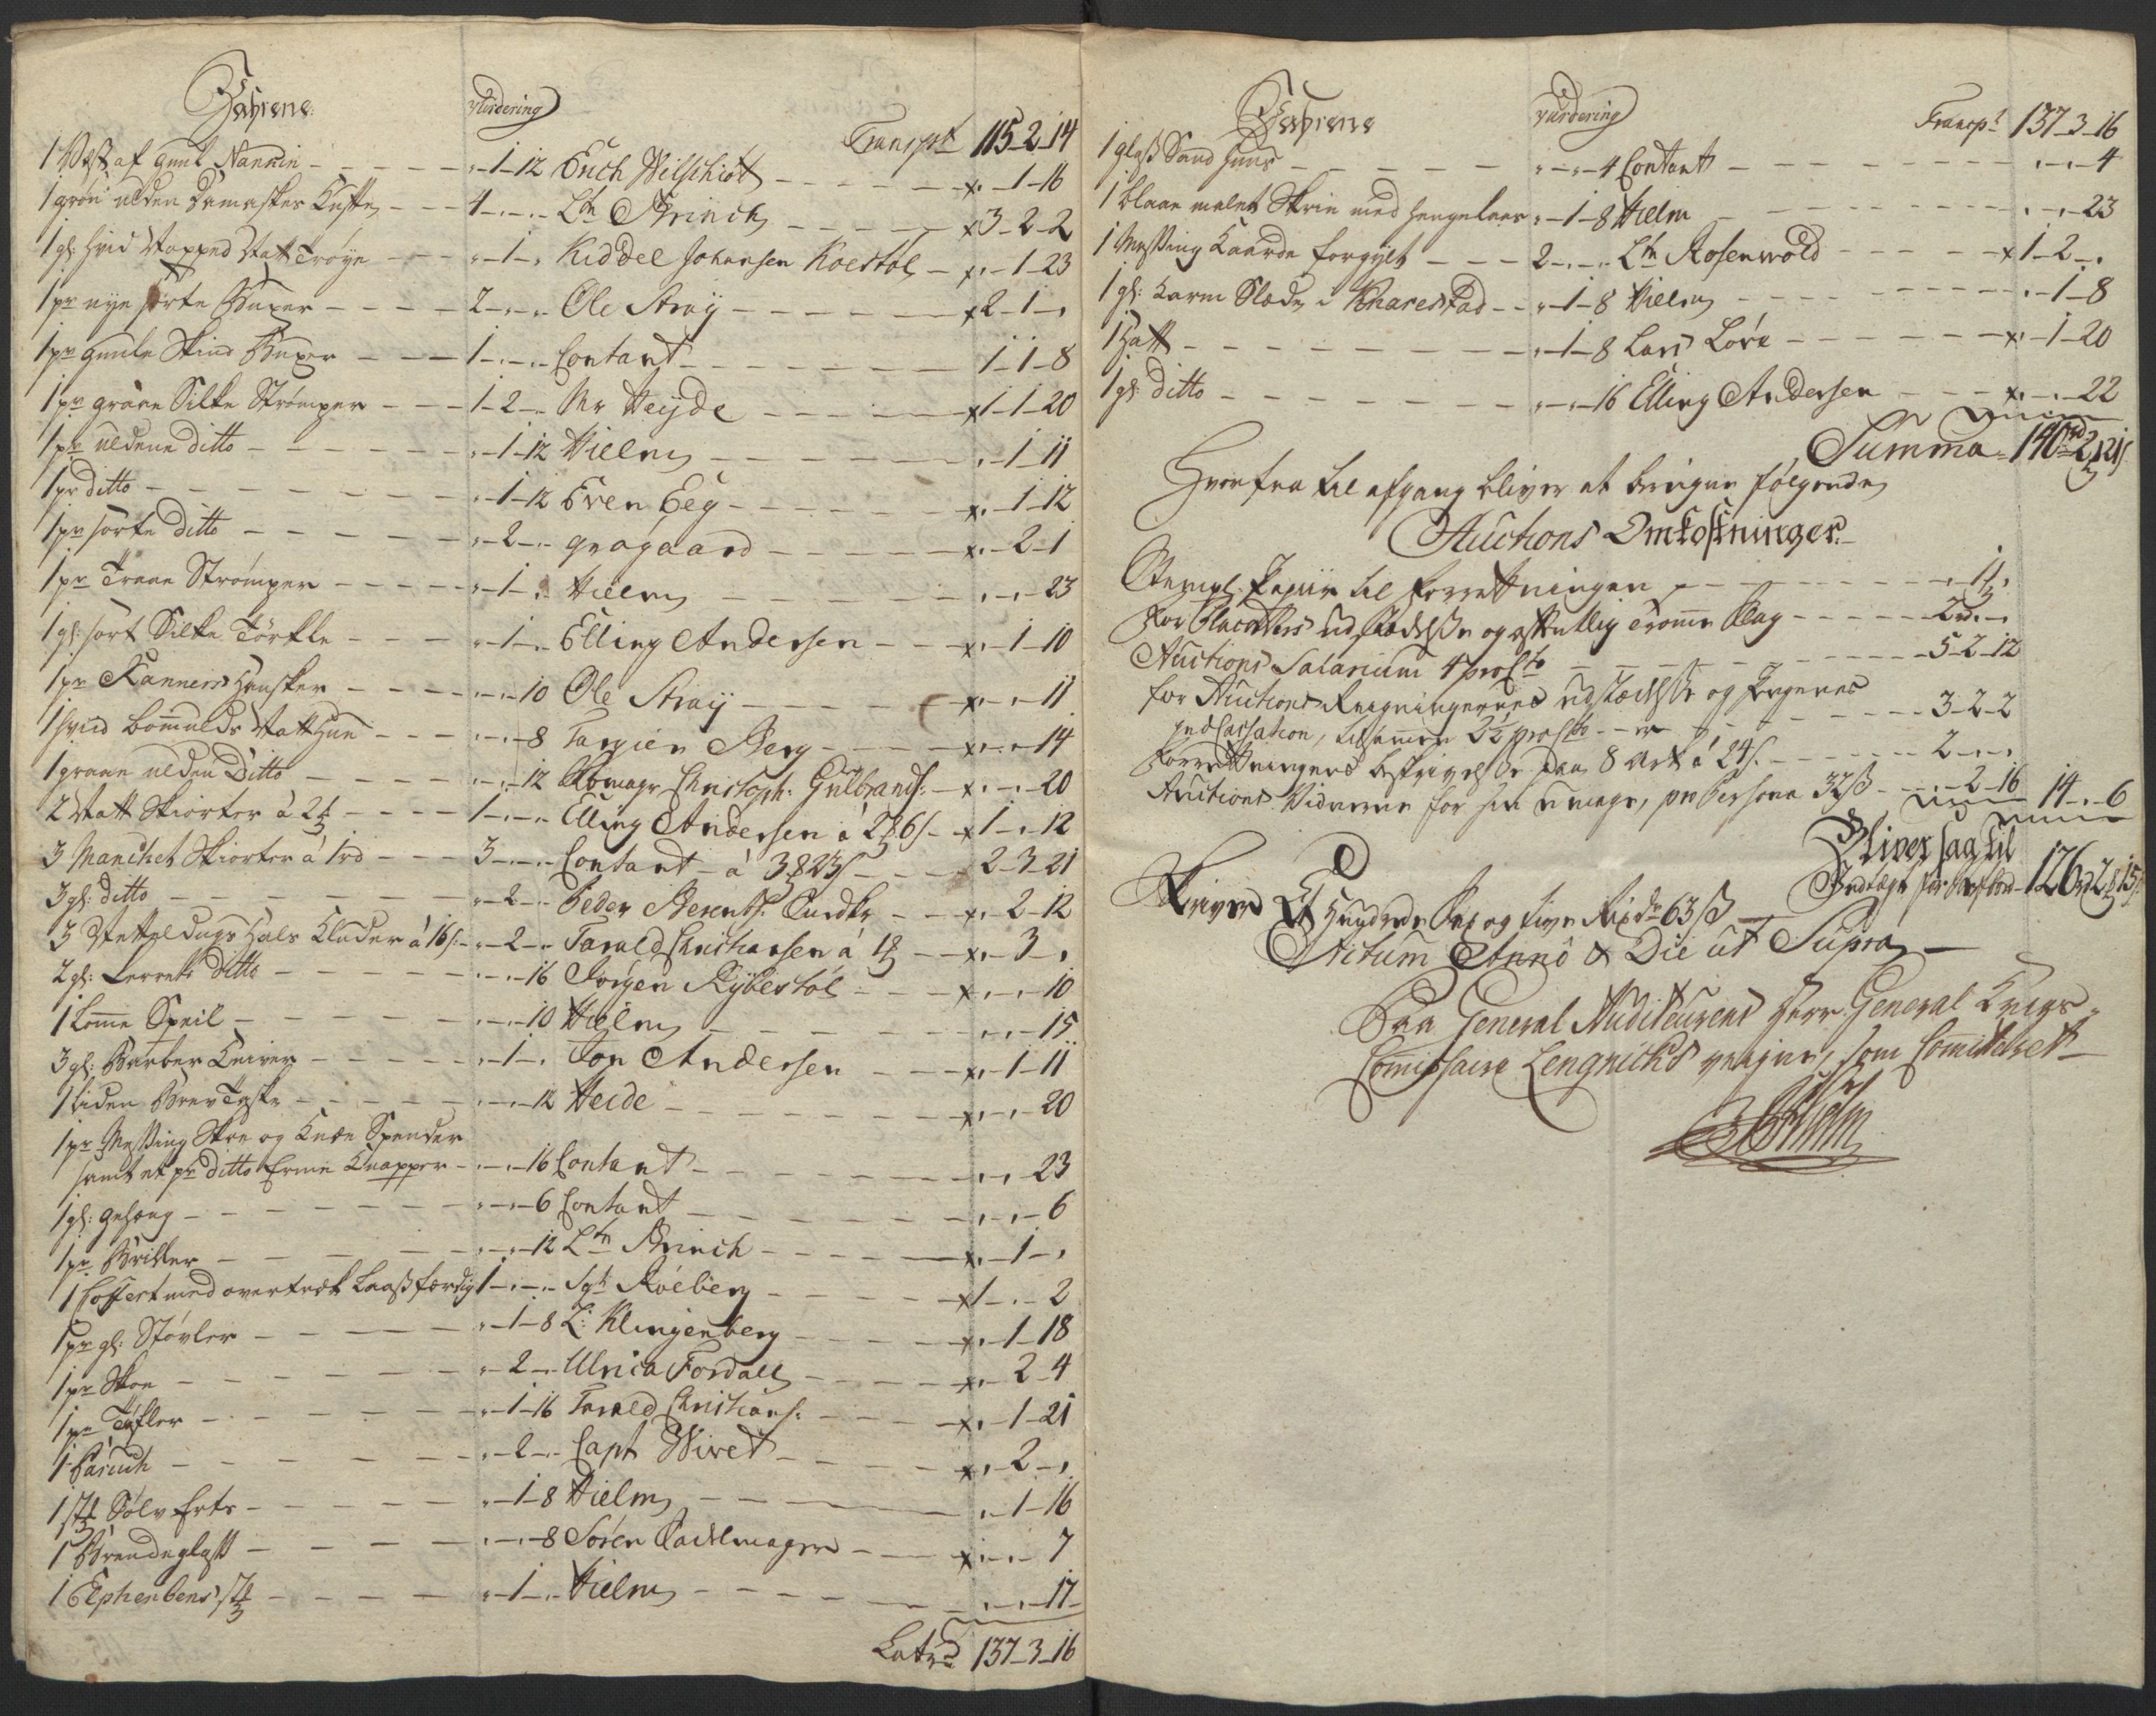 Vahrene vurdering
Transpt 115-2-14
1 Vest af guul Nankin - - - „-1-12 Erich Wilschiøt - - - x„-1-16
1 grøn ulden Damaskes Kiste - - - 4-„-„ Ltn Brinch - - - x3-2-2
1 gl: hvid stopped Natt Trøye - - - „-1-„ Kiddel Johansen Koestøl - x„-1-23
1 pr nye sorte Buxer - - - 2-„-„ Ole Straÿ - - - x2-1-„
1 pr guule Skind Buxer - - - 1-„-„ Contant - - - 1-1-8
1 pr graae Silke Strømper - - - 1-2-„ Mr Heÿde - - - x1-1-20
1 pr uldene ditto - - - „-1-12 Hielm - - - „-1-11
1 pr ditto - - - „-1-12 Even Eeg - - - x„-1-12
1 pr sorte ditto - - - „-2-„ graagaard - - - x„-2-1
1 pr Traae Strømper - - - „-1-„ Hielm - - - „-„-23
1 gl: sort Silke Tørkle - - - „-1-„ Elling Andersen - - - x„-1-10
1 pr Hansker - - - „-„-10 Ole Straÿ - - - x„-„-11
1 hvid bomulds Natt Hue - - - „-„-8 Targien Berg - - - x„-„-14
1 graae ulden Ditto - - - „-„-12 Christoph: Gulbrands: - x„-„-20
2 Natt Skiorter à 2 - - - 1-„-„ Elling Andersen à 2 6 s - x1-„-12
3 Manchet Skiorter à 1 rd - - - 3-„-„ Contant - à 3 23 s - - - 2-3-21
3 gl: ditto - - - „-2-„ Peder Berents: - - - x„-2-12
3 Netteldugs Hals Kluder à 16 s - „-2-„ Tarald Christiansen à 1 - - x„-3-„
2 gl: Lerrets ditto - - - „-„-16 Jørgen Rÿbestøl - - - x„-„-10
1 Lomme Speil - - - „-„-10 Hielm - - - „-„-15
3 gl: Barber Kniver - - - „-1-„ Jon Andersen - - - x„-1-11
1 liden Brev Taske - - - „-„-12 Heide - - - x„-„-20
1 pr Messing Skoe og Knæe Spender
samt et pr ditto Erme Knapper - „-„-16 Contant - - - „-„-23
1 gl: gehæng - - - „-„-6 Contant - - - „-„-6
1 pr Briller - - - „-„-12 Ltn Brinch - - - x„-1-„
1 Coffert med overtræk Laassfærdig 1-„-„ Sgt Røeberg - - - x1-„-2
1 pr gl: Støvler - - - „-1-8 L: Klingenberg - - - x„-1-18
1 pr Skoe - - - „-2-„ Ulrica Fordall - - - x„-2-4
1 pr Tøfler - - - „-1-16 Tarald Christians: - - - x„-1-21
1 Paruch - - - „-2-„ Capt Wivet - - - x„-2-„
1 st Sølv Erts - - - „-1-8 Hielm - - - „-1-16
1 Brendeglass - - - „-„-8 Søren Sadelmager - - - x„-„-7
1 Elphenbens st - - - „-1-„ Hielm - - - „-„-17
Latrd 137-3-16
Vahrene vurdering
Transpt 137-3-16
1 glass Sand Huus - - - „-„-4 Contant - - - „-„-4
1 blaae malet Skrin med hengelaas „-1-8 Hielm - - - „-„-23
1 Messing Kaarde forgylt - - - 2-„-„ Ltn Rosenwold - - - x1-2-„
1 gl: Karm Slæde i Kharestad - - „-1-8 Hielm - - - „-1-8
1 Hatt - - - „-1-8 Lars Løve - - - x„-1-20
1 gl: ditto - - - „-„-16 Elling Andersen - - - x„-„-22
Summa 140 rd 2 21 s
Hvorfra til afgang bliver at beregne følgende
Auctions Omkostninger.
Stempl. Papiir til forretningen - - - „-1-„
For Placaters udstædelse og offentlig Tromme Slag - - - 2-„
Auctions Salarium 4 pro Cto - - - 5-2-12
for Auctions Reigningernes udstædelse og Pengenes
Indcassation, tilsammen 2½ pro Cto - - - 3-2-2
Forretningens beskrivelse paa 8 Ark à 24 s. - - - 2-„-„
Auctions Vidnerne for hver umage, pr Persohn 32 s - - - „-2-16 14-„-6
Bliver saa til
Indtægt for 126 rd 2 15 s
Skriver Et Hundrede Sex og tive Rixdr 63 s
Actum Anno & Die ut Supra
Paa General Auditeurens Herr General Krigs-
Commissaire Lengnicks vegne, som Committeret
Hielm